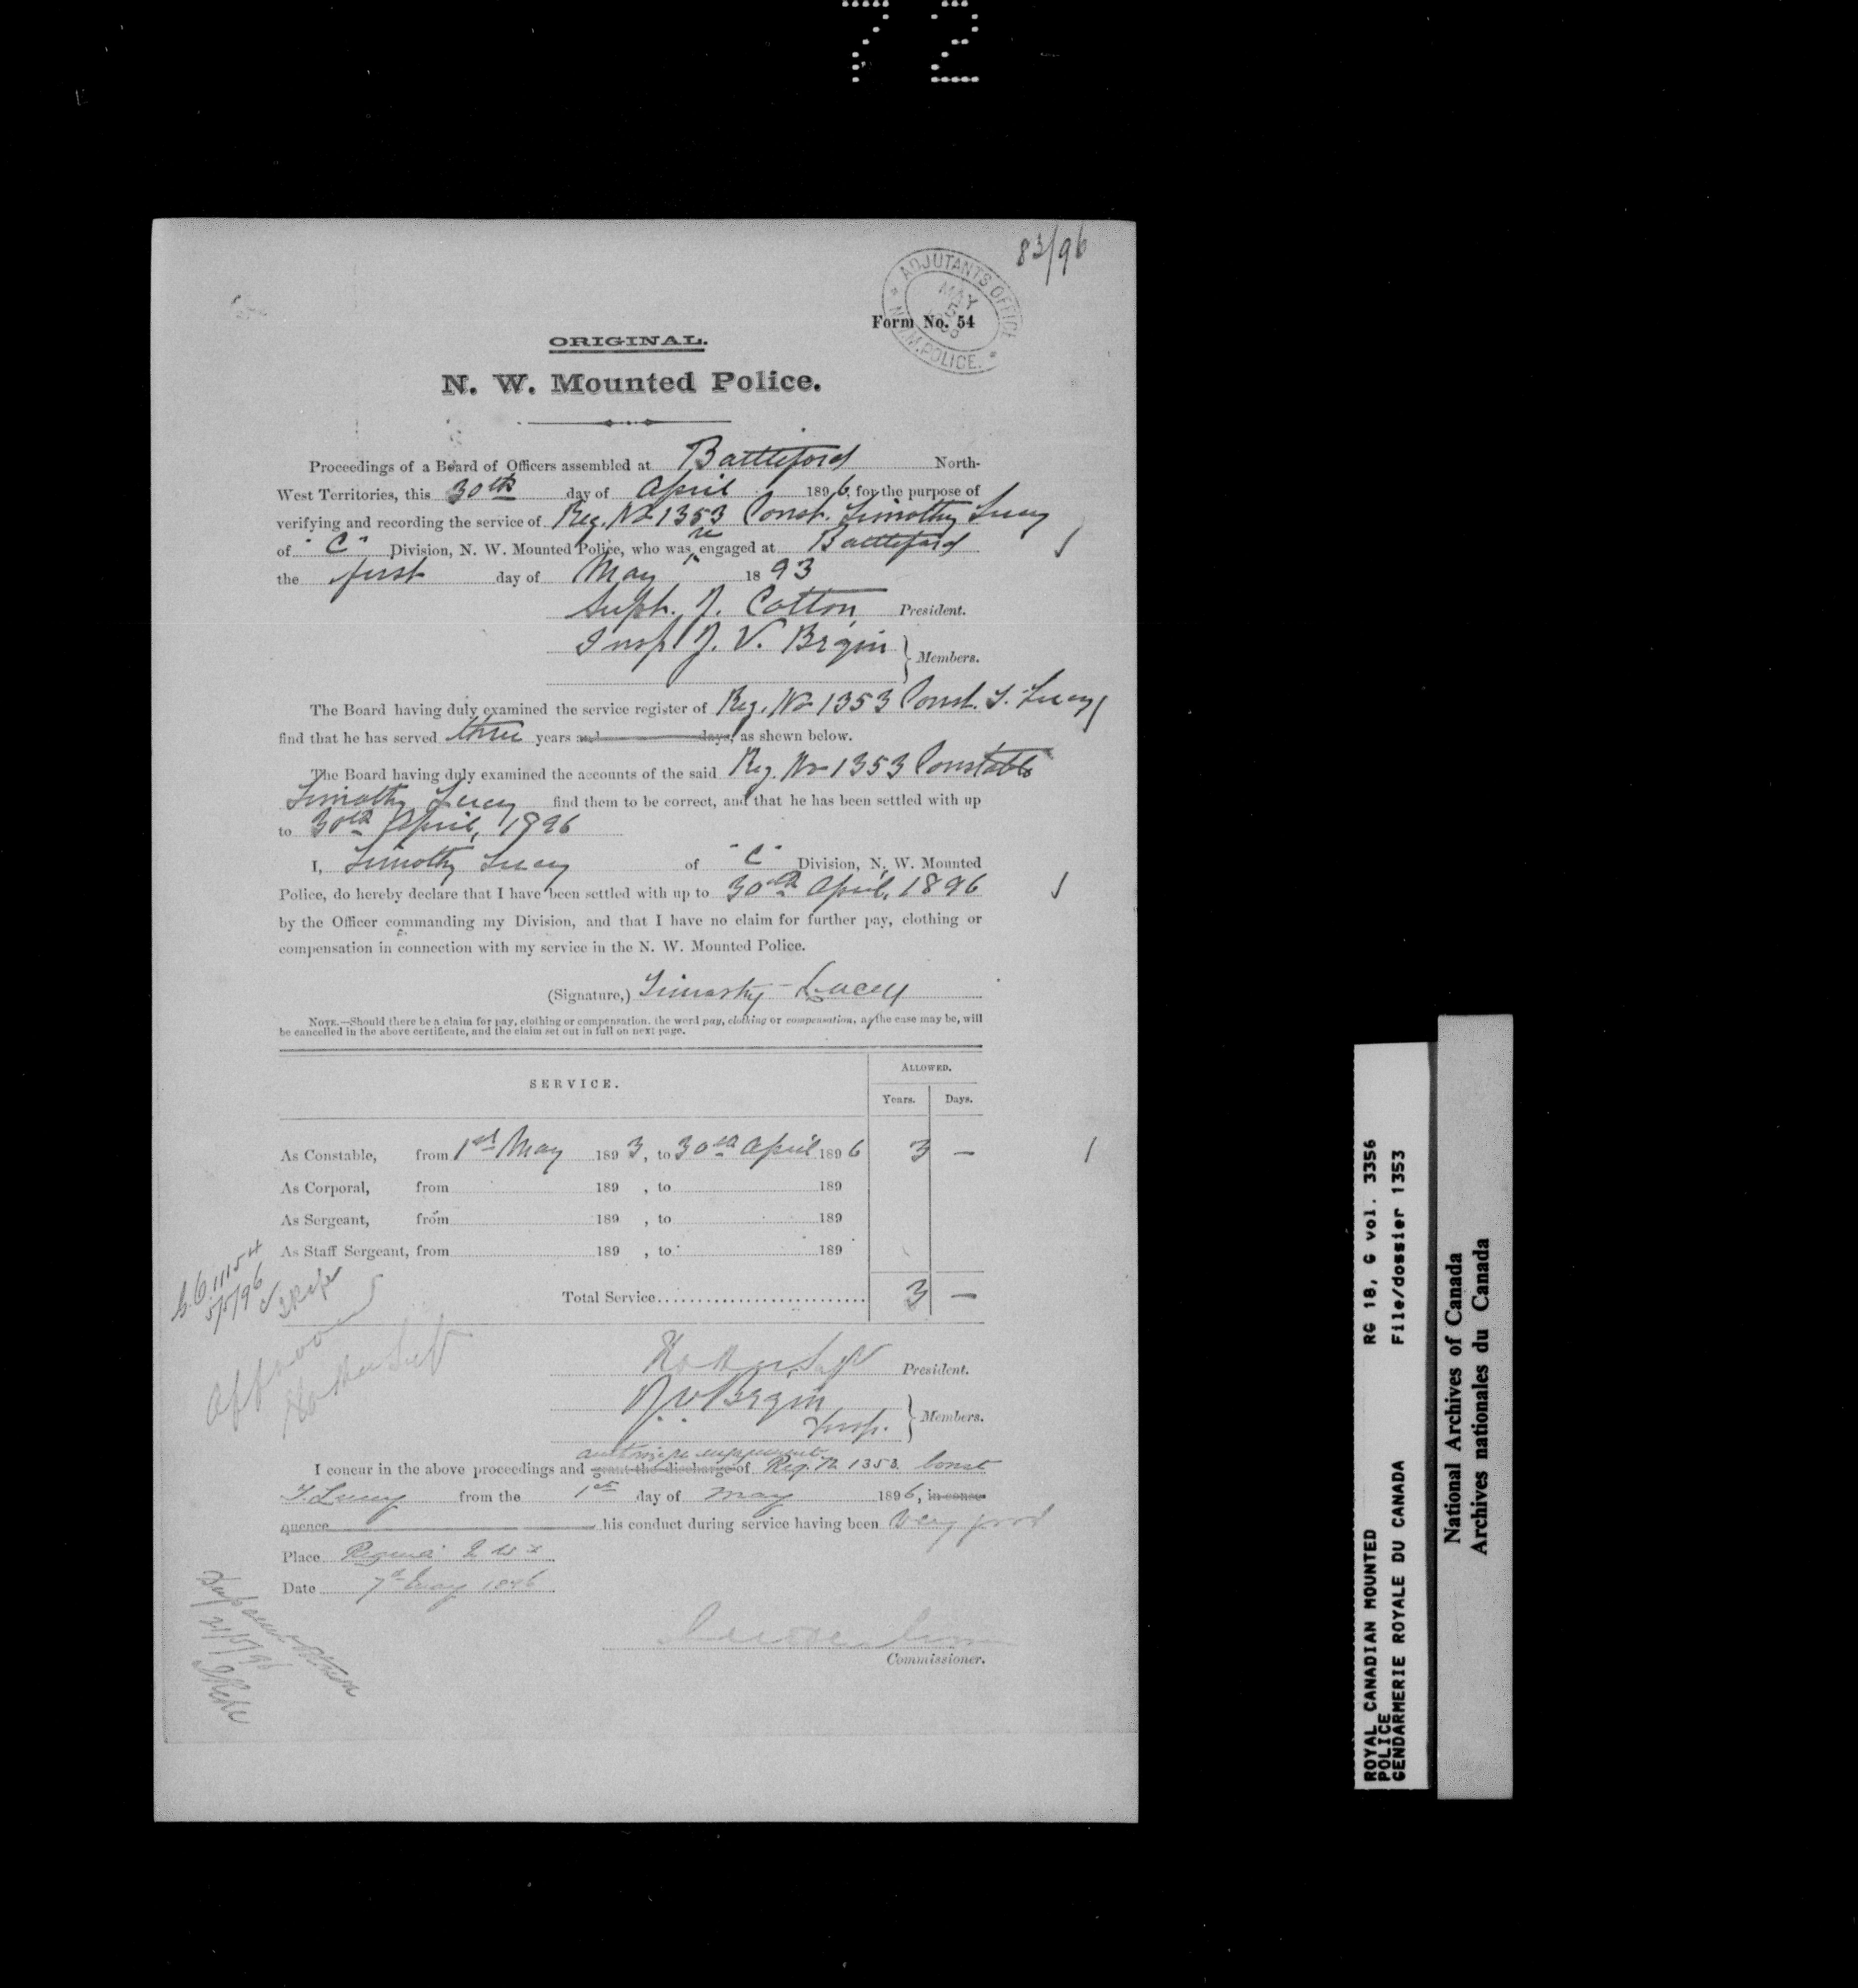 72
83/96
ADJUTANTS OFFICE
MAY 5 96
N.W.M. POLICE.
Form No. 54
ORIGINAL.
N. W. Mounted Police.
Proceedings of a Board of Officers assembled at Battleford North-
West Territories, this 30th day of April 1896, for the purpose of
verifying and recording the service of Reg. No 1353 Const. Timothy Lucey
of "C" Division, N. W. Mounted Police, who was re engaged at Battleford
the first day of May 1893
Supt. J. Cotton, President.
Insp J. V. Begin } Members.
The Board having duly examined the service register of Reg. No 1353 Const. T. Lucey
find that he has served three years and days, as shewn below.
The Board having duly examined the accounts of the said Reg. No 1353 Constable
Timothy Lucey find them to be correct, and that he has been settled with up
to 30th April, 1896
I, Timothy Lucey of "C" Division, N. W. Mounted
Police, do hereby declare that I have been settled with up to 30th April, 1896
by the Officer commanding my Division, and that I have no claim for further pay, clothing or
compensation in connection with my service in the N. W. Mounted Police.
(Signature,) Timothy Lucey
NOTE.—Should there be a claim for pay, clothing or compensation, the word pay, clothing or compensation, as the case may be, will
be cancelled in the above certificate, and the claim set out in full on next page.
SERVICE.
ALLOWED.
Years. Days.
As Constable, from 1st May 1893, to 30th April 1896 3 —
As Corporal, from 189 , to 189
As Sergeant, from 189 , to 189
As Staff Sergeant, from 189 , to 189
Total Service 3 —
G.O. 11154
5/5/96
Approved
President.
J V Begin
Insp. } Members.
authorize re engagement
I concur in the above proceedings and grant the discharge of Reg. No 1353 Const
T. Lucey from the 1st day of May 1896, in conse-
quence his conduct during service having been very good
Place Regina
Date 7th May 1896
Commissioner.
ROYAL CANADIAN MOUNTED
POLICE
GENDARMERIE ROYALE DU CANADA
RG 18, G vol. 3356
File/dossier 1353
National Archives of Canada
Archives nationales du Canada